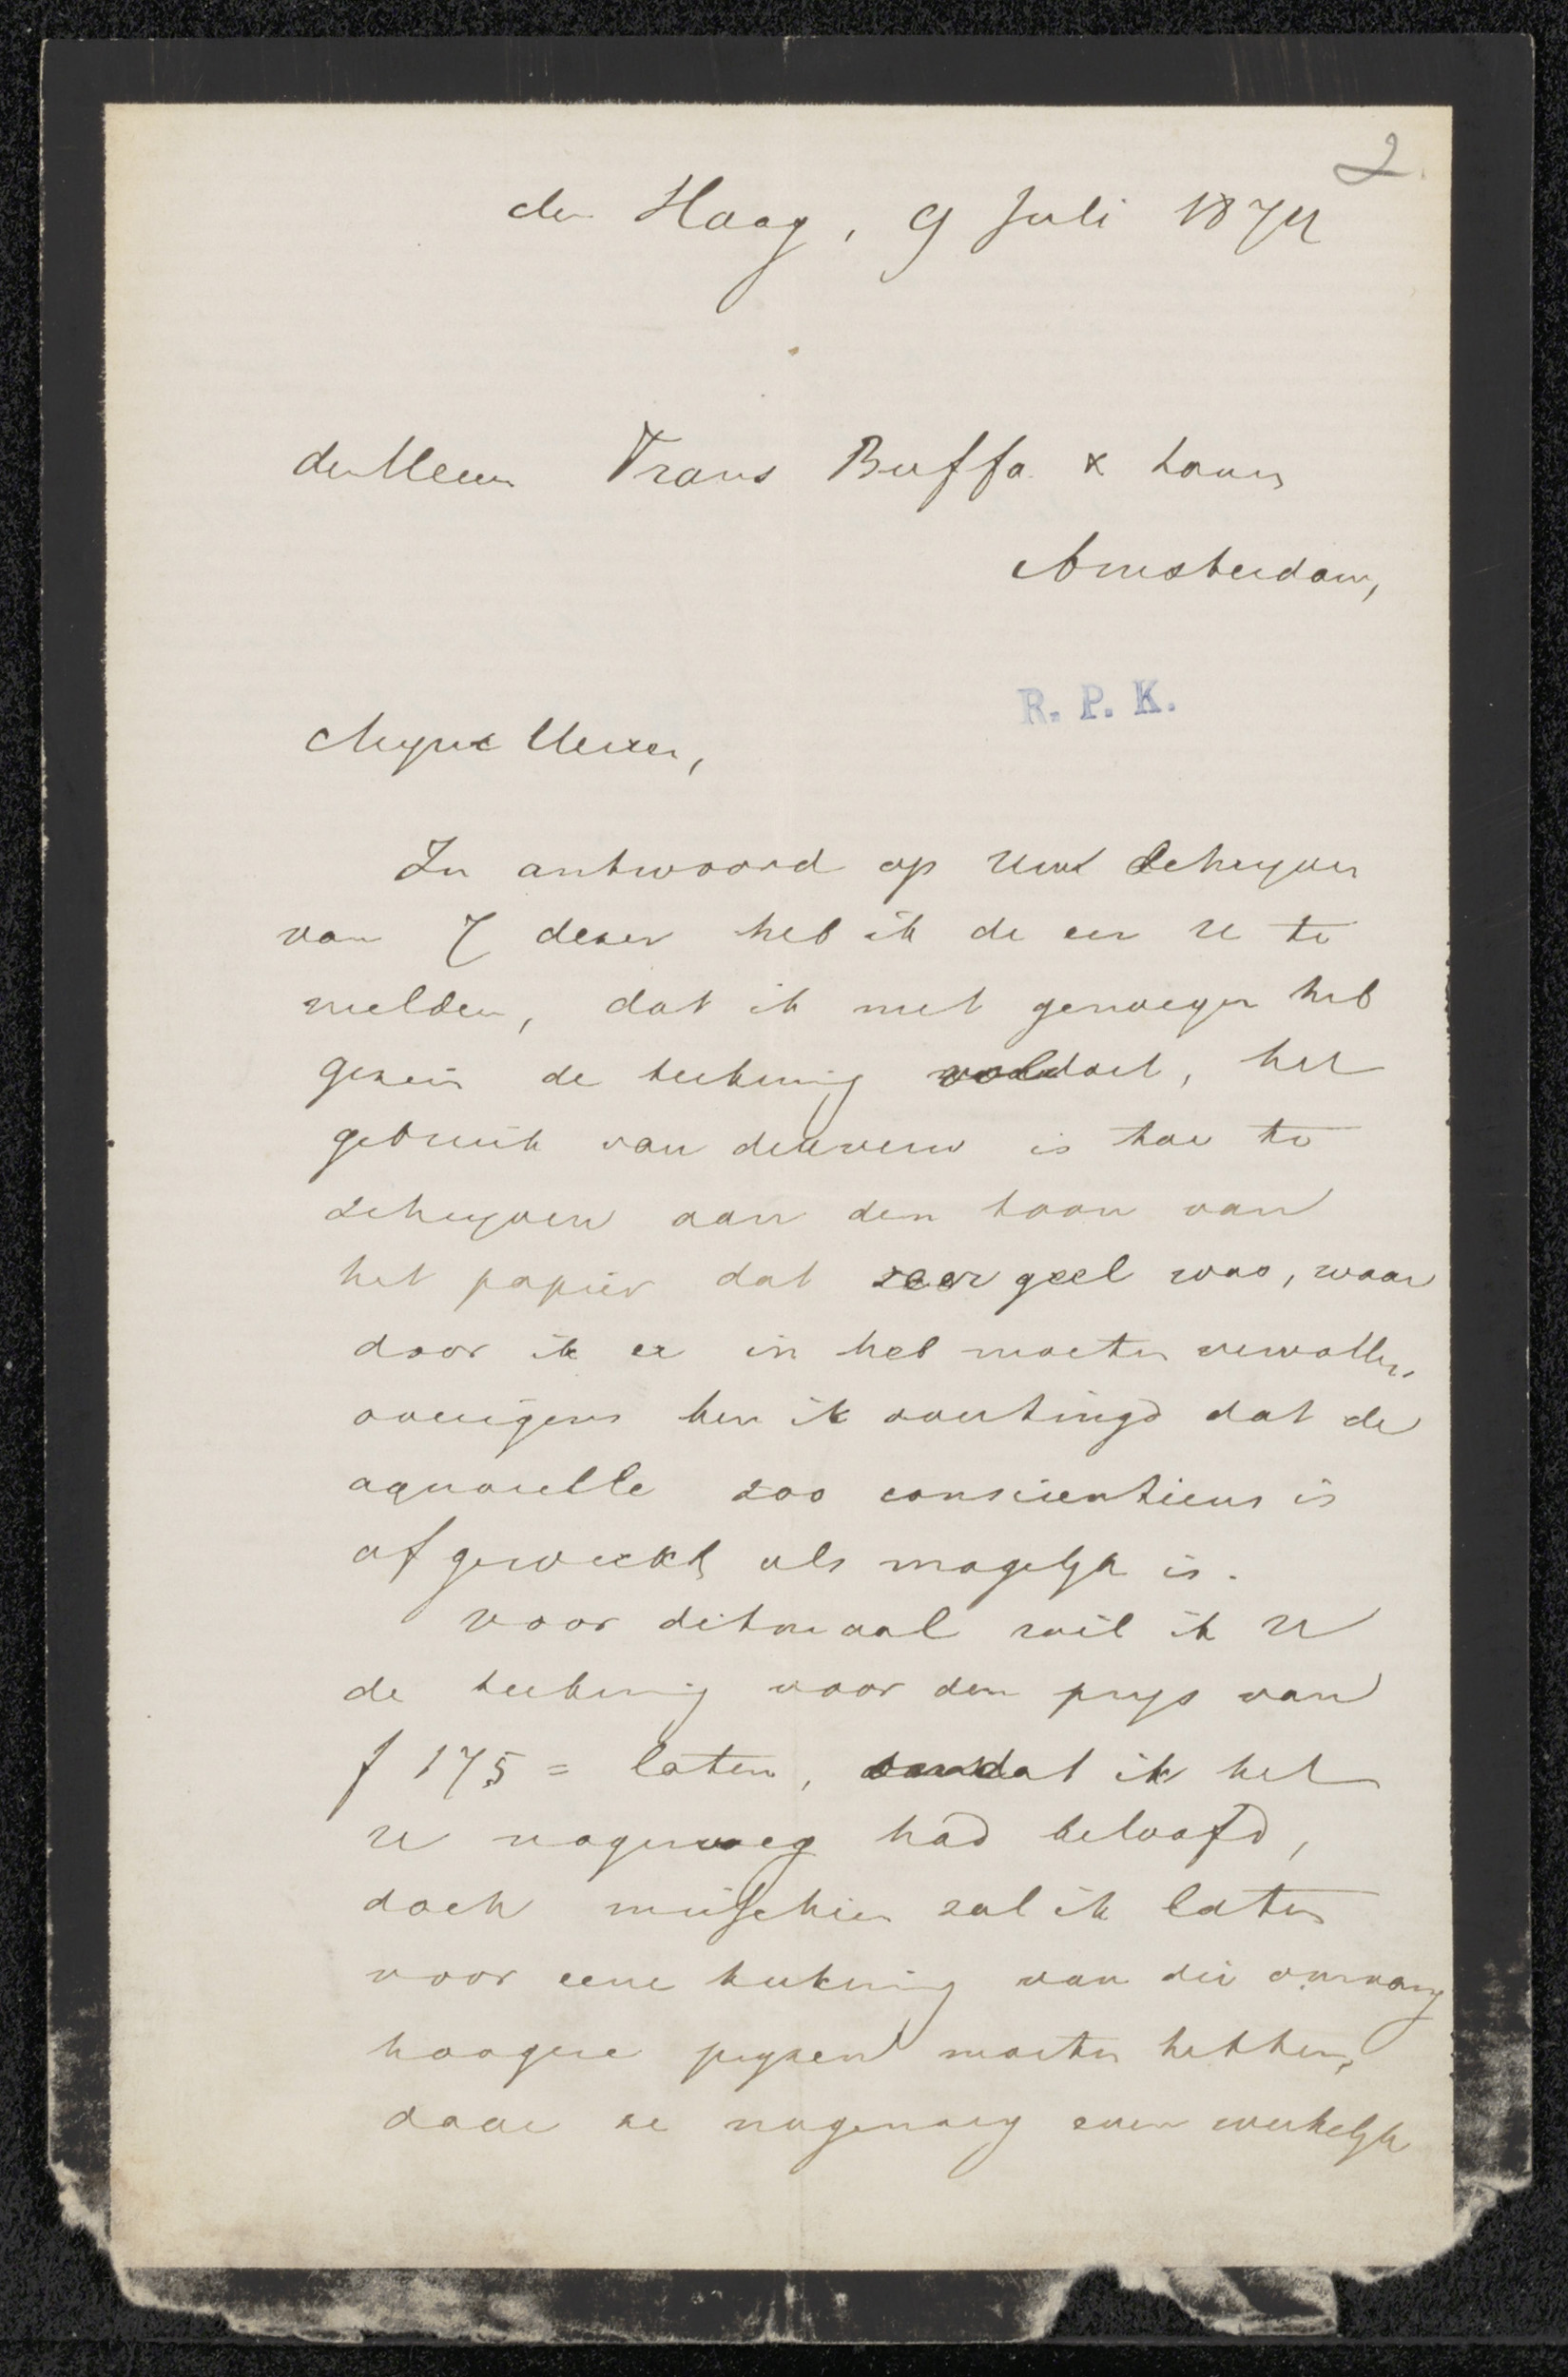 2
den Haag, 9 Juli 1874
den Heeren Frans Buffa & zonen
Amsterdam,
R. P. K.
Myne Heeren,
In antwoord op Uwe schryven
van 7 dezer heb ik de eer U te
melden, dat ik met genoegen heb
gezien de teekening voldoet, het
gebruik van dekverw is toe te
schryven aan den toon van
het papier dat zeer geel was, waar
door ik er in heb moeten vervallen,
overigens ben ik overtuigd dat de
aquarelle zoo conscientieus is
afgewerkt als mogelyk is.
voor ditmaal wil ik U
de teekening voor den prys van
f 175 = laten, omdat ik het
U nagenoeg had beloofd,
doch misschien zal ik later
voor eene teekening van die omvang
hoogere pryzen moeten hebben,
daar ze nagenoeg even werkelyk